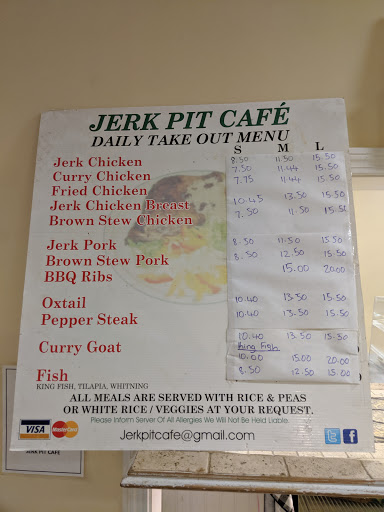 JERK PIT CAFÉ
DAILY TAKE OUT MENU
S M L
Jerk Chicken 8.50 11.50 15.50
Curry Chicken 7.50 11.44 15.50
Fried Chicken 7.75 11.44 15.50
Jerk Chicken Breast 10.45 13.50 15.50
Brown Stew Chicken 7.50 11.50 15.50
Jerk Pork 8.50 11.50 15.50
Brown Stew Pork 8.50 12.50 15.50
BBQ Ribs 15.00 20.00
Oxtail 10.40 13.50 15.50
Pepper Steak 10.40 13.50 15.50
Curry Goat 10.40 13.50 15.50
King Fish
Fish 10.00 15.00 20.00
KING FISH, TILAPIA, WHITNING 8.50 12.50 15.00
ALL MEALS ARE SERVED WITH RICE & PEAS
OR WHITE RICE / VEGGIES AT YOUR REQUEST.
Please Inform Server Of All Allergies We Will Not Be Held Liable.
VISA MasterCard
Jerkpitcafe@gmail.com
JERK PIT CAFE